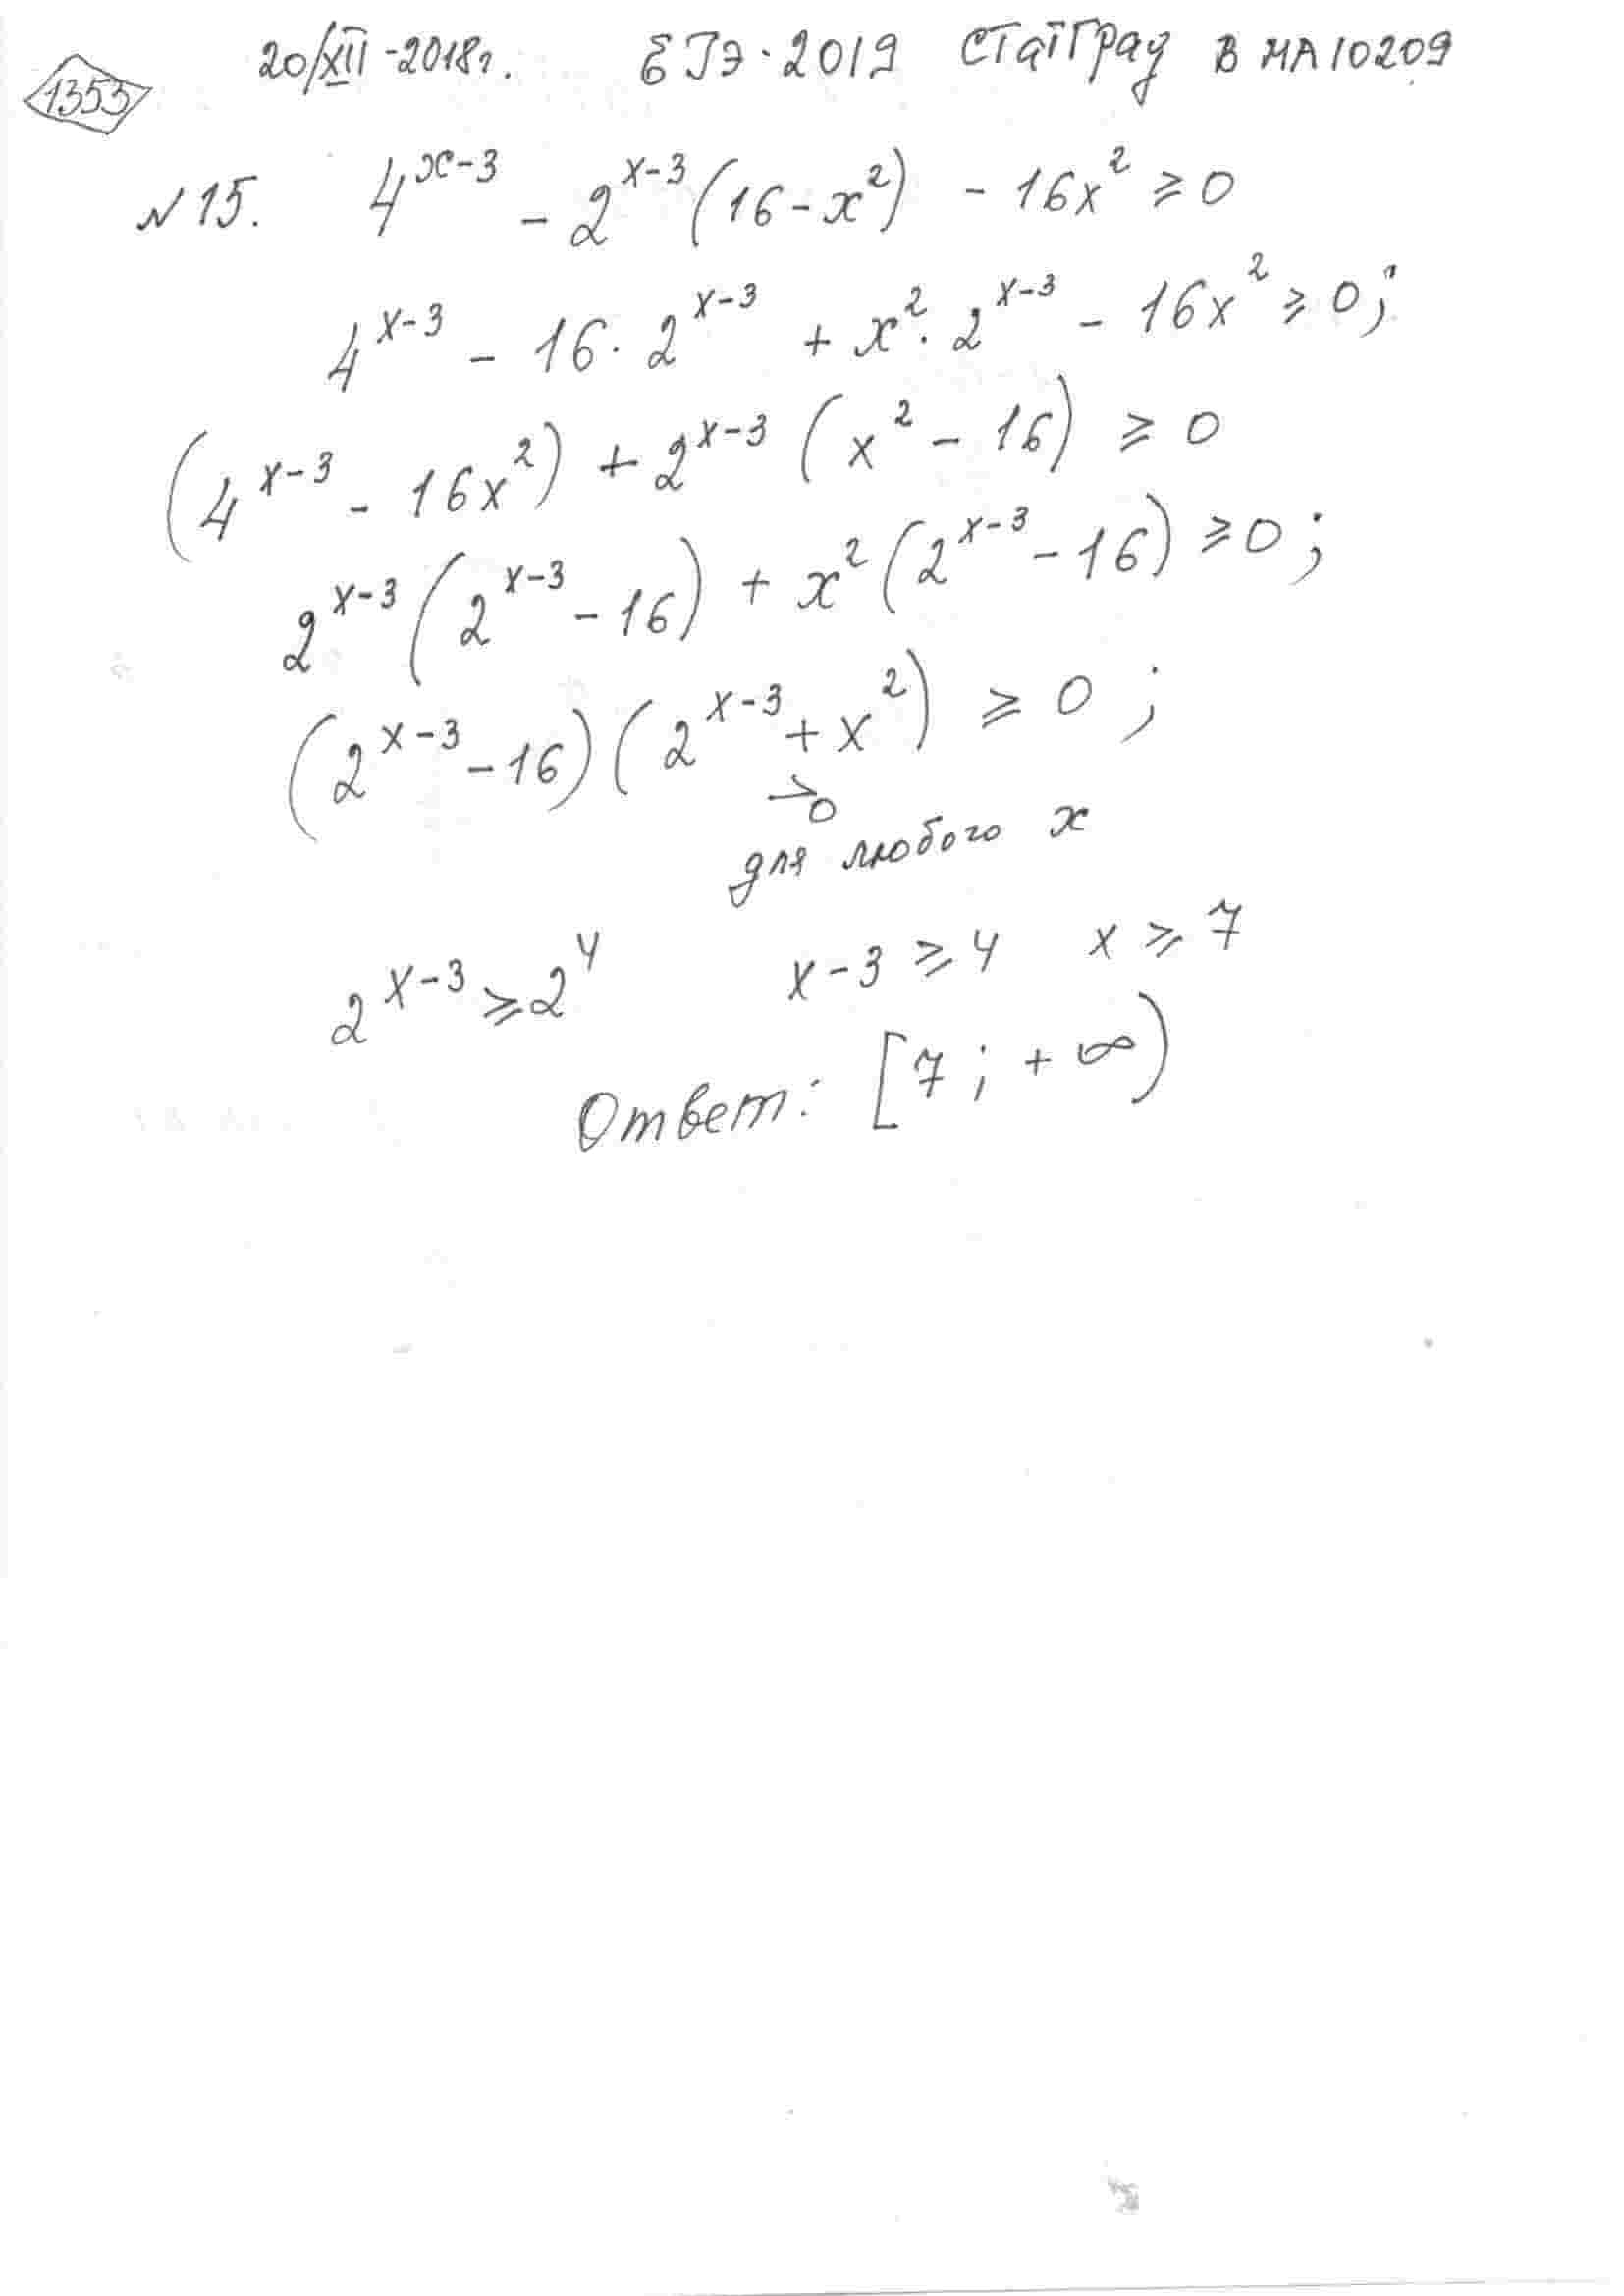 1353
20/XII-2018г. ЕГЭ-2019 СтатГрад В МА10209
№15. 4^(x-3) - 2^(x-3)(16-x²) - 16x² ⩾ 0
4^(x-3) - 16·2^(x-3) + x²·2^(x-3) - 16x² ⩾ 0;
(4^(x-3) - 16x²) + 2^(x-3)(x² - 16) ⩾ 0
2^(x-3)(2^(x-3) - 16) + x²(2^(x-3) - 16) ⩾ 0;
(2^(x-3) - 16)(2^(x-3) + x²) ⩾ 0;
>0
для любого x
2^(x-3) ⩾ 2^4 x-3 ⩾ 4 x ⩾ 7
Ответ: [7; +∞)